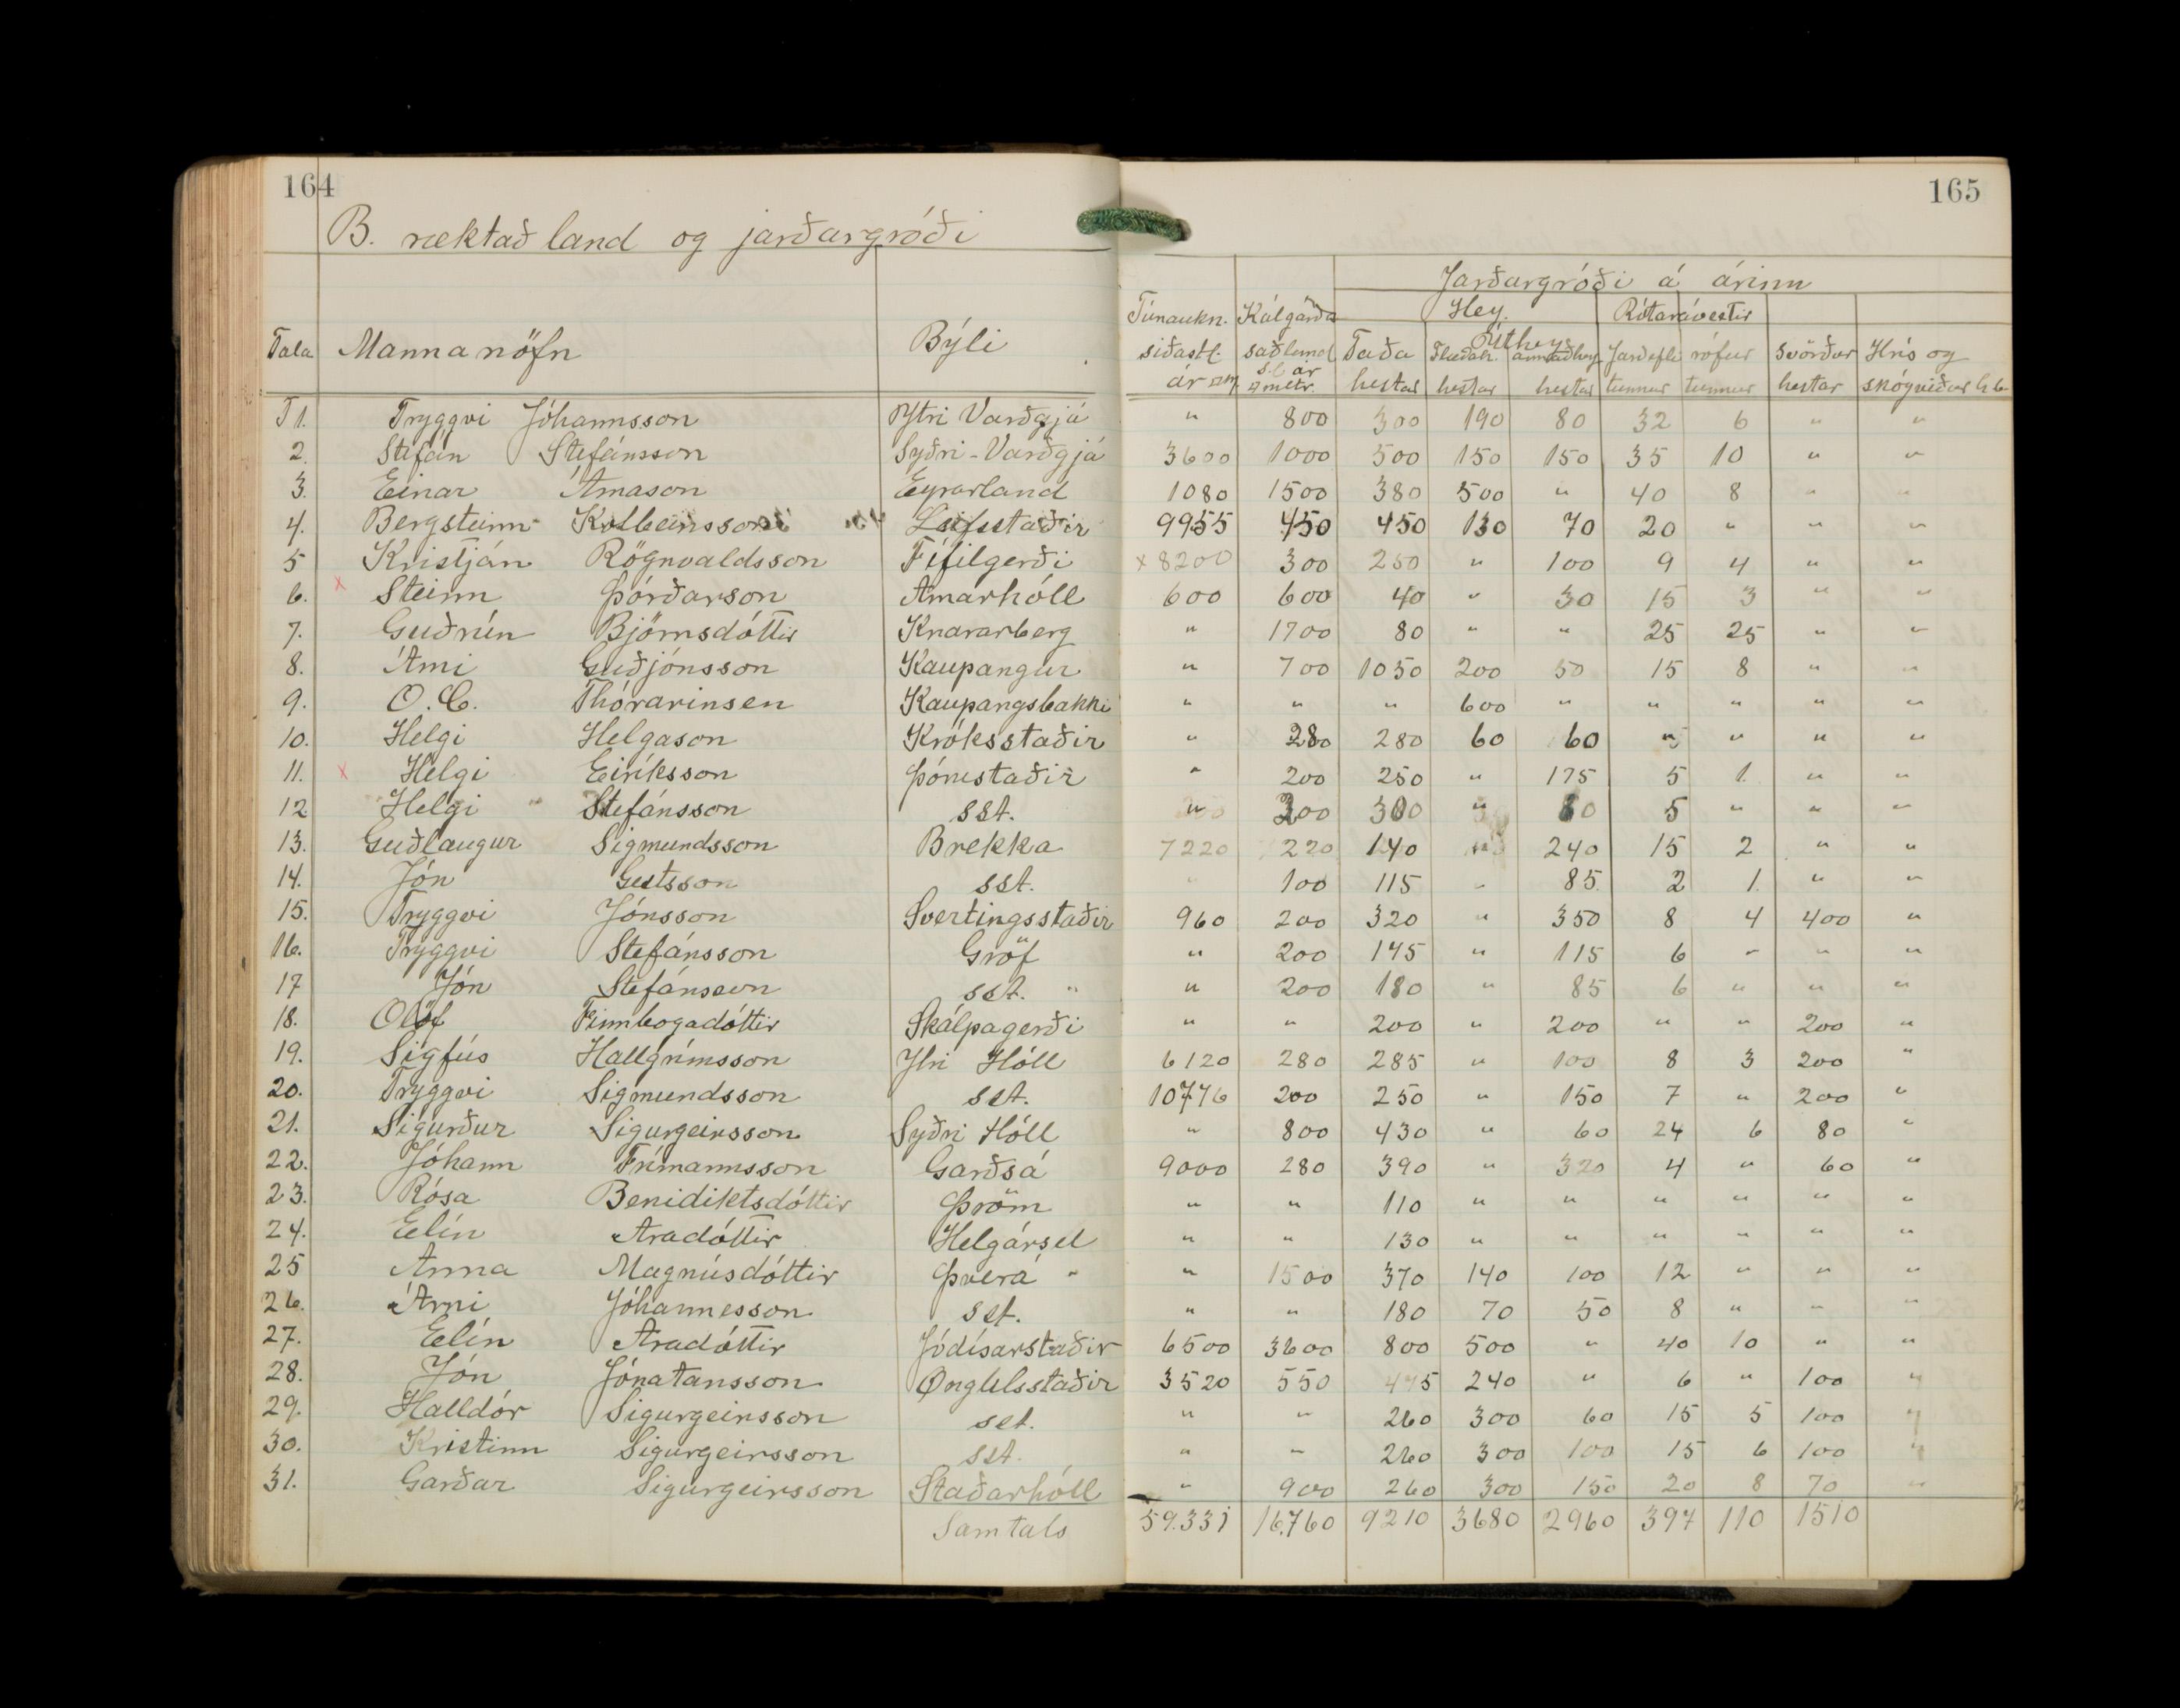 164
165
B. ræktað land og jarðargróði
Jarðargróði á árinu
Túnaukn. Kálgarða Hey. Rótarávextir
Úthey
Tala Manna nöfn Býli síðastl. sáðland Taða Flæðah. annað hey Jarðepli rófur svörður Hrís og
ár □m. s.l. ár □metr. hestar hestar hestar tunnur tunnur hestar skógviður hb.
T 1. Tryggvi Jóhannsson Ytri Varðgjá " 800 300 190 80 32 6 " "
2. Stefán Stefánsson Syðri-Varðgjá 3600 1000 500 150 150 35 10 " "
3. Einar Árnason Eyrarland 1080 1500 380 500 " 40 8 " "
4. Bergsteinn Kolbeinsson Leifsstaðir 9955 450 450 130 70 20 " " "
5 Kristján Rögnvaldsson Fífilgerði x 8200 300 250 " 100 9 4 " "
6. x Steinn Þórðarson Arnarhóll 600 600 40 " 30 15 3 " "
7. Guðrún Björnsdóttir Knararberg " 1700 80 " " 25 25 " "
8. Árni Guðjónsson Kaupangur " 700 1050 200 50 15 8 " "
9. O. C. Thórarinsen Kaupangsbakki " " " 600 " " " " "
10. Helgi Helgason Króksstaðir " 280 280 60 60 " " " "
11. x Helgi Eiríksson Þórustaðir " 200 250 " 175 5 1 " "
12 Helgi " Stefánsson sst. " 200 300 " 80 5 " " "
13. Guðlaugur Sigmundsson Brekka 7220 220 140 " 240 15 2 " "
14. Jón Gestsson sst. " 100 115 " 85 2 1 " "
15. Tryggvi Jónsson Svertingsstaðir 960 200 320 " 350 8 4 400 "
16. Tryggvi Stefánsson Gröf " 200 145 " 115 6 " " "
17 Jón Stefánsson sst. " " 200 180 " 85 6 " " "
18. Ólöf Finnbogadóttir Skálpagerði " " 200 " 200 " " 200 "
19. Sigfús Hallgrímsson Ytri Hóll 6120 280 285 " 100 8 3 200 "
20. Tryggvi Sigmundsson sst. 10776 200 250 " 150 7 " 200 "
21. Sigurður Sigurgeirsson Syðri Hóll " 800 430 " 60 24 6 80 "
22. Jóhann Frímannsson Garðsá 9000 280 390 " 320 4 " 60 "
23. Rósa Benidiktsdóttir Þröm " " 110 " " " " " "
24. Elín Aradóttir Helgársel " " 130 " " " " " "
25 Anna Magnúsdóttir Þverá " " 1500 370 140 100 12 " " "
26. Árni Jóhannesson sst. " " 180 70 50 8 " " "
27. Elín Aradóttir Jódísarstaðir 6500 3600 800 500 " 40 10 " "
28. Jón Jónatansson Öngulsstaðir 3520 550 475 240 " 6 " 100 "
29. Halldór Sigurgeirsson sst. " " 260 300 60 15 5 100 "
30. Kristinn Sigurgeirsson sst. " " 260 300 100 15 6 100 "
31. Garðar Sigurgeirsson Staðarhóll " 900 260 300 150 20 8 70 "
Samtals 59.331 16.760 9210 3680 2960 397 110 1510